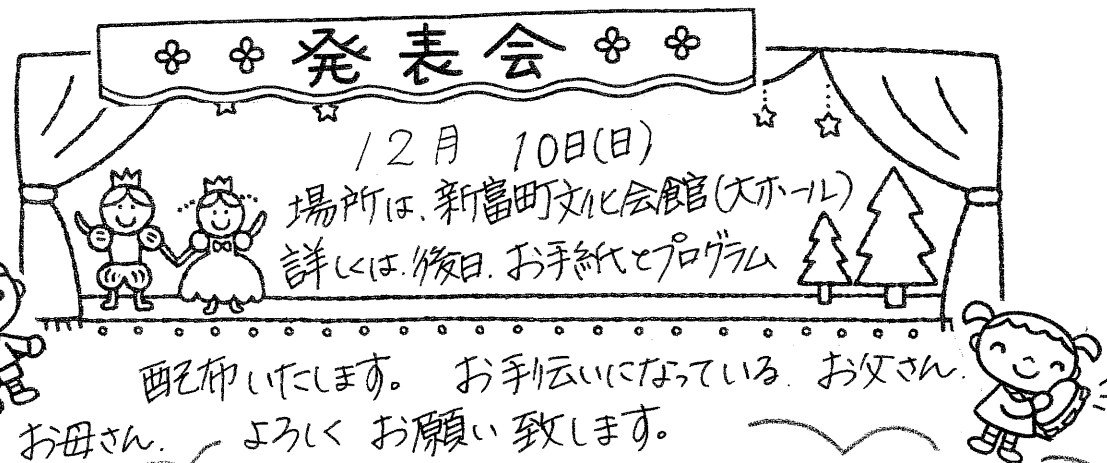 発表会
12月 10日(日)
場所は、新富町文化会館(大ホール)
詳しくは、後日、お手紙とプログラム
配布いたします。 お手伝いになっている、お父さん、
お母さん、 よろしくお願い致します。